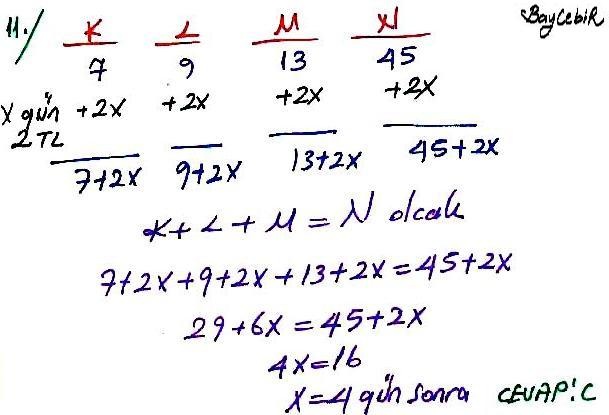 BayCebiR
11./ K L M N
7 9 13 45
X gün +2X +2X +2X +2X
2 TL
7+2X 9+2X 13+2X 45+2X
K+L+M=N olcak
7+2X+9+2X+13+2X=45+2X
29+6X=45+2X
4X=16
X=4 gün sonra CEVAP:C